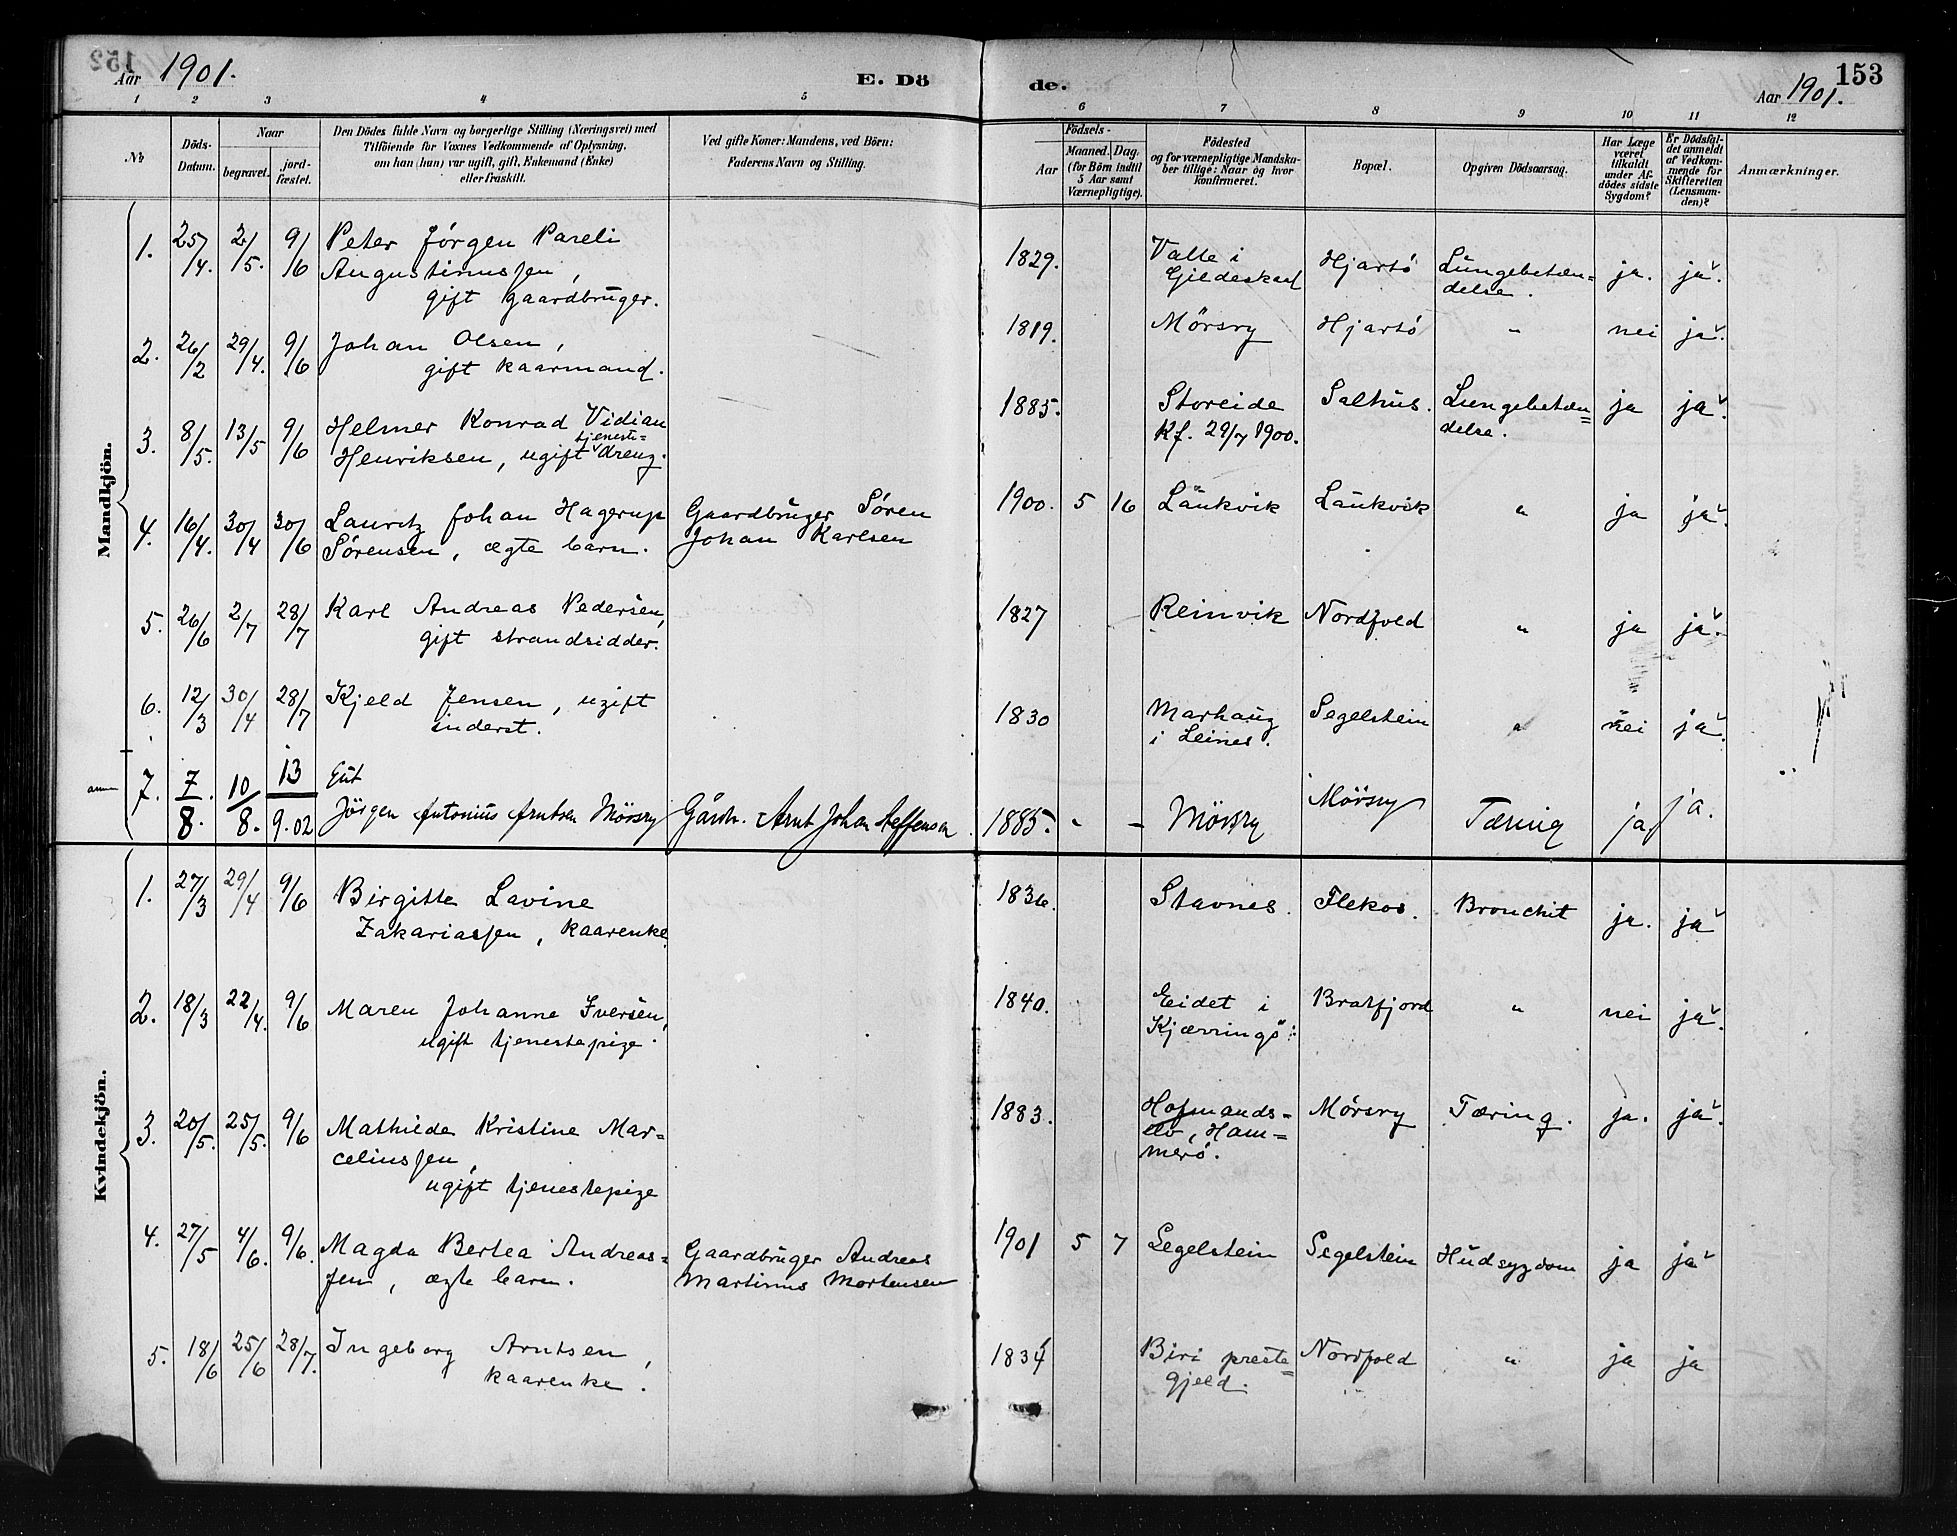 Aar 1901. E. Döde. Aar 1901. 153
1 2 3 4 5 6 7 8 9 10 11 12
No
Döds-Datum.
Naar
begravet.
jord-fæstet.
Den Dödes fulde Navn og borgerlige Stilling (Næringsvei) med
Tilföiende for Voxnes Vedkommende af Oplysning,
om han (hun) var ugift, gift, Enkemand (Enke)
eller fraskilt.
Ved gifte Koner: Mandens, ved Börn:
Faderens Navn og Stilling.
Födsels-
Aar
Maaned. Dag.
(for Börn indtil
5 Aar samt
Værnepligtige).
Födested
og for værnepligtige Mandska-
ber tillige: Naar og hvor
konfirmeret.
Bopæl.
Opgiven Dödsaarsag.
Har Læge
været
tilkaldt
under Af-
dödes sidste
Sygdom?
Er Dödsfal-
det anmeldt
af Vedkom-
mende for
Skifteretten
(Lensman-
den)?
Anmærkninger.
Mandkjön.
1. 25/4. 2/5. 9/6 Peter Jørgen Pareli 1829. Valle i Hjartö Lungebetæn= ja. ja.
Augustinussen, Gildeskaal delse.
gift gaardbruger.
2. 26/2 29/4. 9/6 Johan Olsen, 1819. Mörsry Hjartö " nei ja.
gift kaarmand.
3. 8/5. 13/5 9/6 Helmer Konrad Vidian 1885. Storeide Salhus. Lungebetæn= ja ja.
tjeneste=
Henriksen, ugift dreng. Kf. 29/7 1900. delse.
4. 16/4. 30/4 30/6 Lauritz Johan Hagerup Gaardbruger Sören 1900. 5 16 Laukvik Laukvik " ja ja.
Sørensen, ægte barn. Johan Karlsen
5. 26/6 2/7 28/7 Karl Andreas Pedersen, 1827 Reinvik Nordfold " ja ja.
gift strandsidder.
6. 12/3 30/4 28/7 Kjeld Jensen, ugift 1830 Marhaug Segelstein " nei ja.
inderst. i Leines.
7. 7/8. 10/8. 13/9.02
Jörgen Antonius Arntsen Mörsry Gårdbr. Arnt Johan Steffensen 1885. - - Mörsry Mörsry Tæring ja. ja.
Kvindekjön.
1. 27/3 29/4 9/6 Birgitte Lavine 1836. Stavnes. Flekos. Bronchit ja. ja
Zakariassen, kaarenke
2. 18/3 22/4. 9/6 Maren Johanne Iversen, 1840. Eidet i Bratfjord " nei ja.
ugift tjenestepige. Kjærringö.
3. 20/5. 25/5. 9/6 Mathilde Kristine Mar- 1883. Hofmands= Mörsry Tæring. ja. ja.
celiussen, elv, Ham=
ugift tjenestepige merö.
4. 27/5 4/6. 9/6. Magda Bertea Andreas= Gaardbruger Andreas 1901 5 7 Segelstein Segelstein Hudsygdom ja ja
sen, ægte barn. Martinus Mortensen
5. 18/6 25/6 28/7. Ingeborg Arntsen, 1834 Biri preste= Nordfold " ja ja
kaarenke. gjeld.